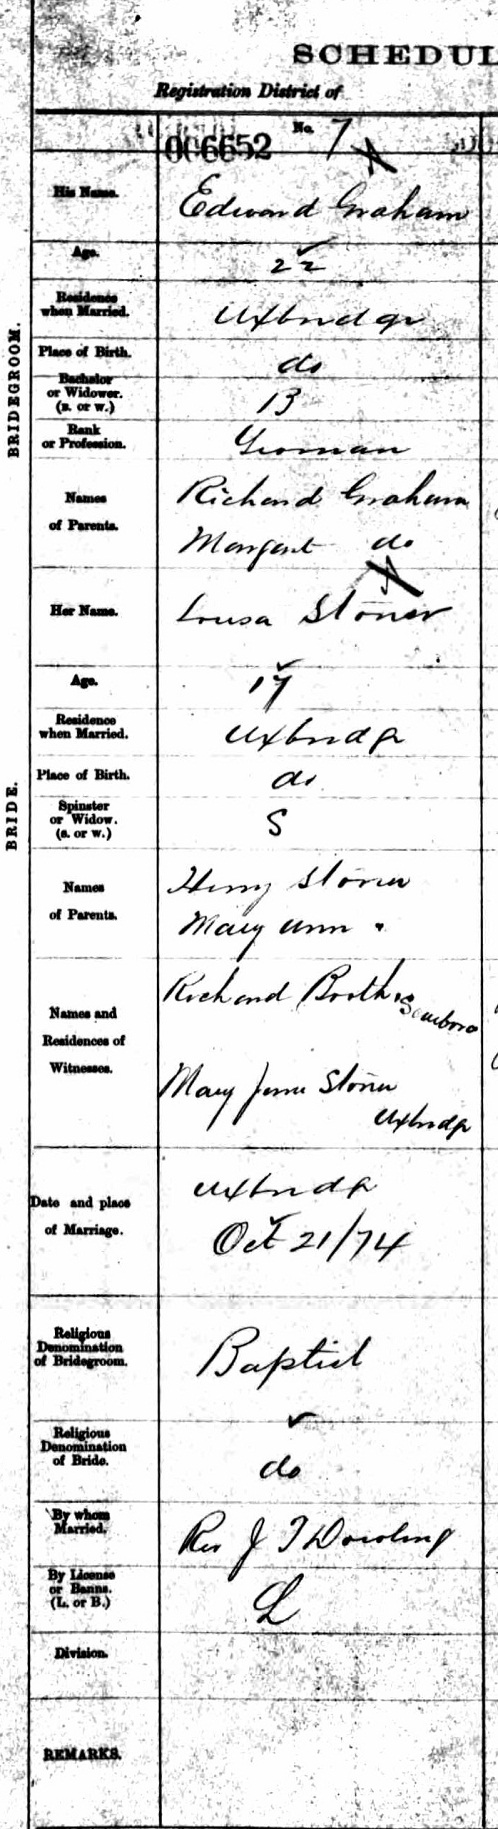 SCHEDUL
Registration District of
006652 No. 7
BRIDEGROOM.
His Name. Edward Graham
Age. 22
Residence when Married. Uxbridge
Place of Birth. do
Bachelor or Widower. (B. or W.) B
Rank or Profession. Yeoman
Names of Parents. Richard Graham
Margaret do
BRIDE.
Her Name. Louisa Stoner
Age. 17
Residence when Married. Uxbridge
Place of Birth. do
Spinster or Widow. (S. or W.) S
Names of Parents. Henry Stoner
Mary Ann "
Names and Residences of Witnesses. Richard Booth, Scarboro
Mary Jane Stoner
Uxbridge
Date and place of Marriage. Uxbridge
Oct 21/74
Religious Denomination of Bridegroom. Baptist
Religious Denomination of Bride. do
By whom Married. Rev J T Dowling
By License or Banns. (L. or B.) L
Division.
REMARKS.